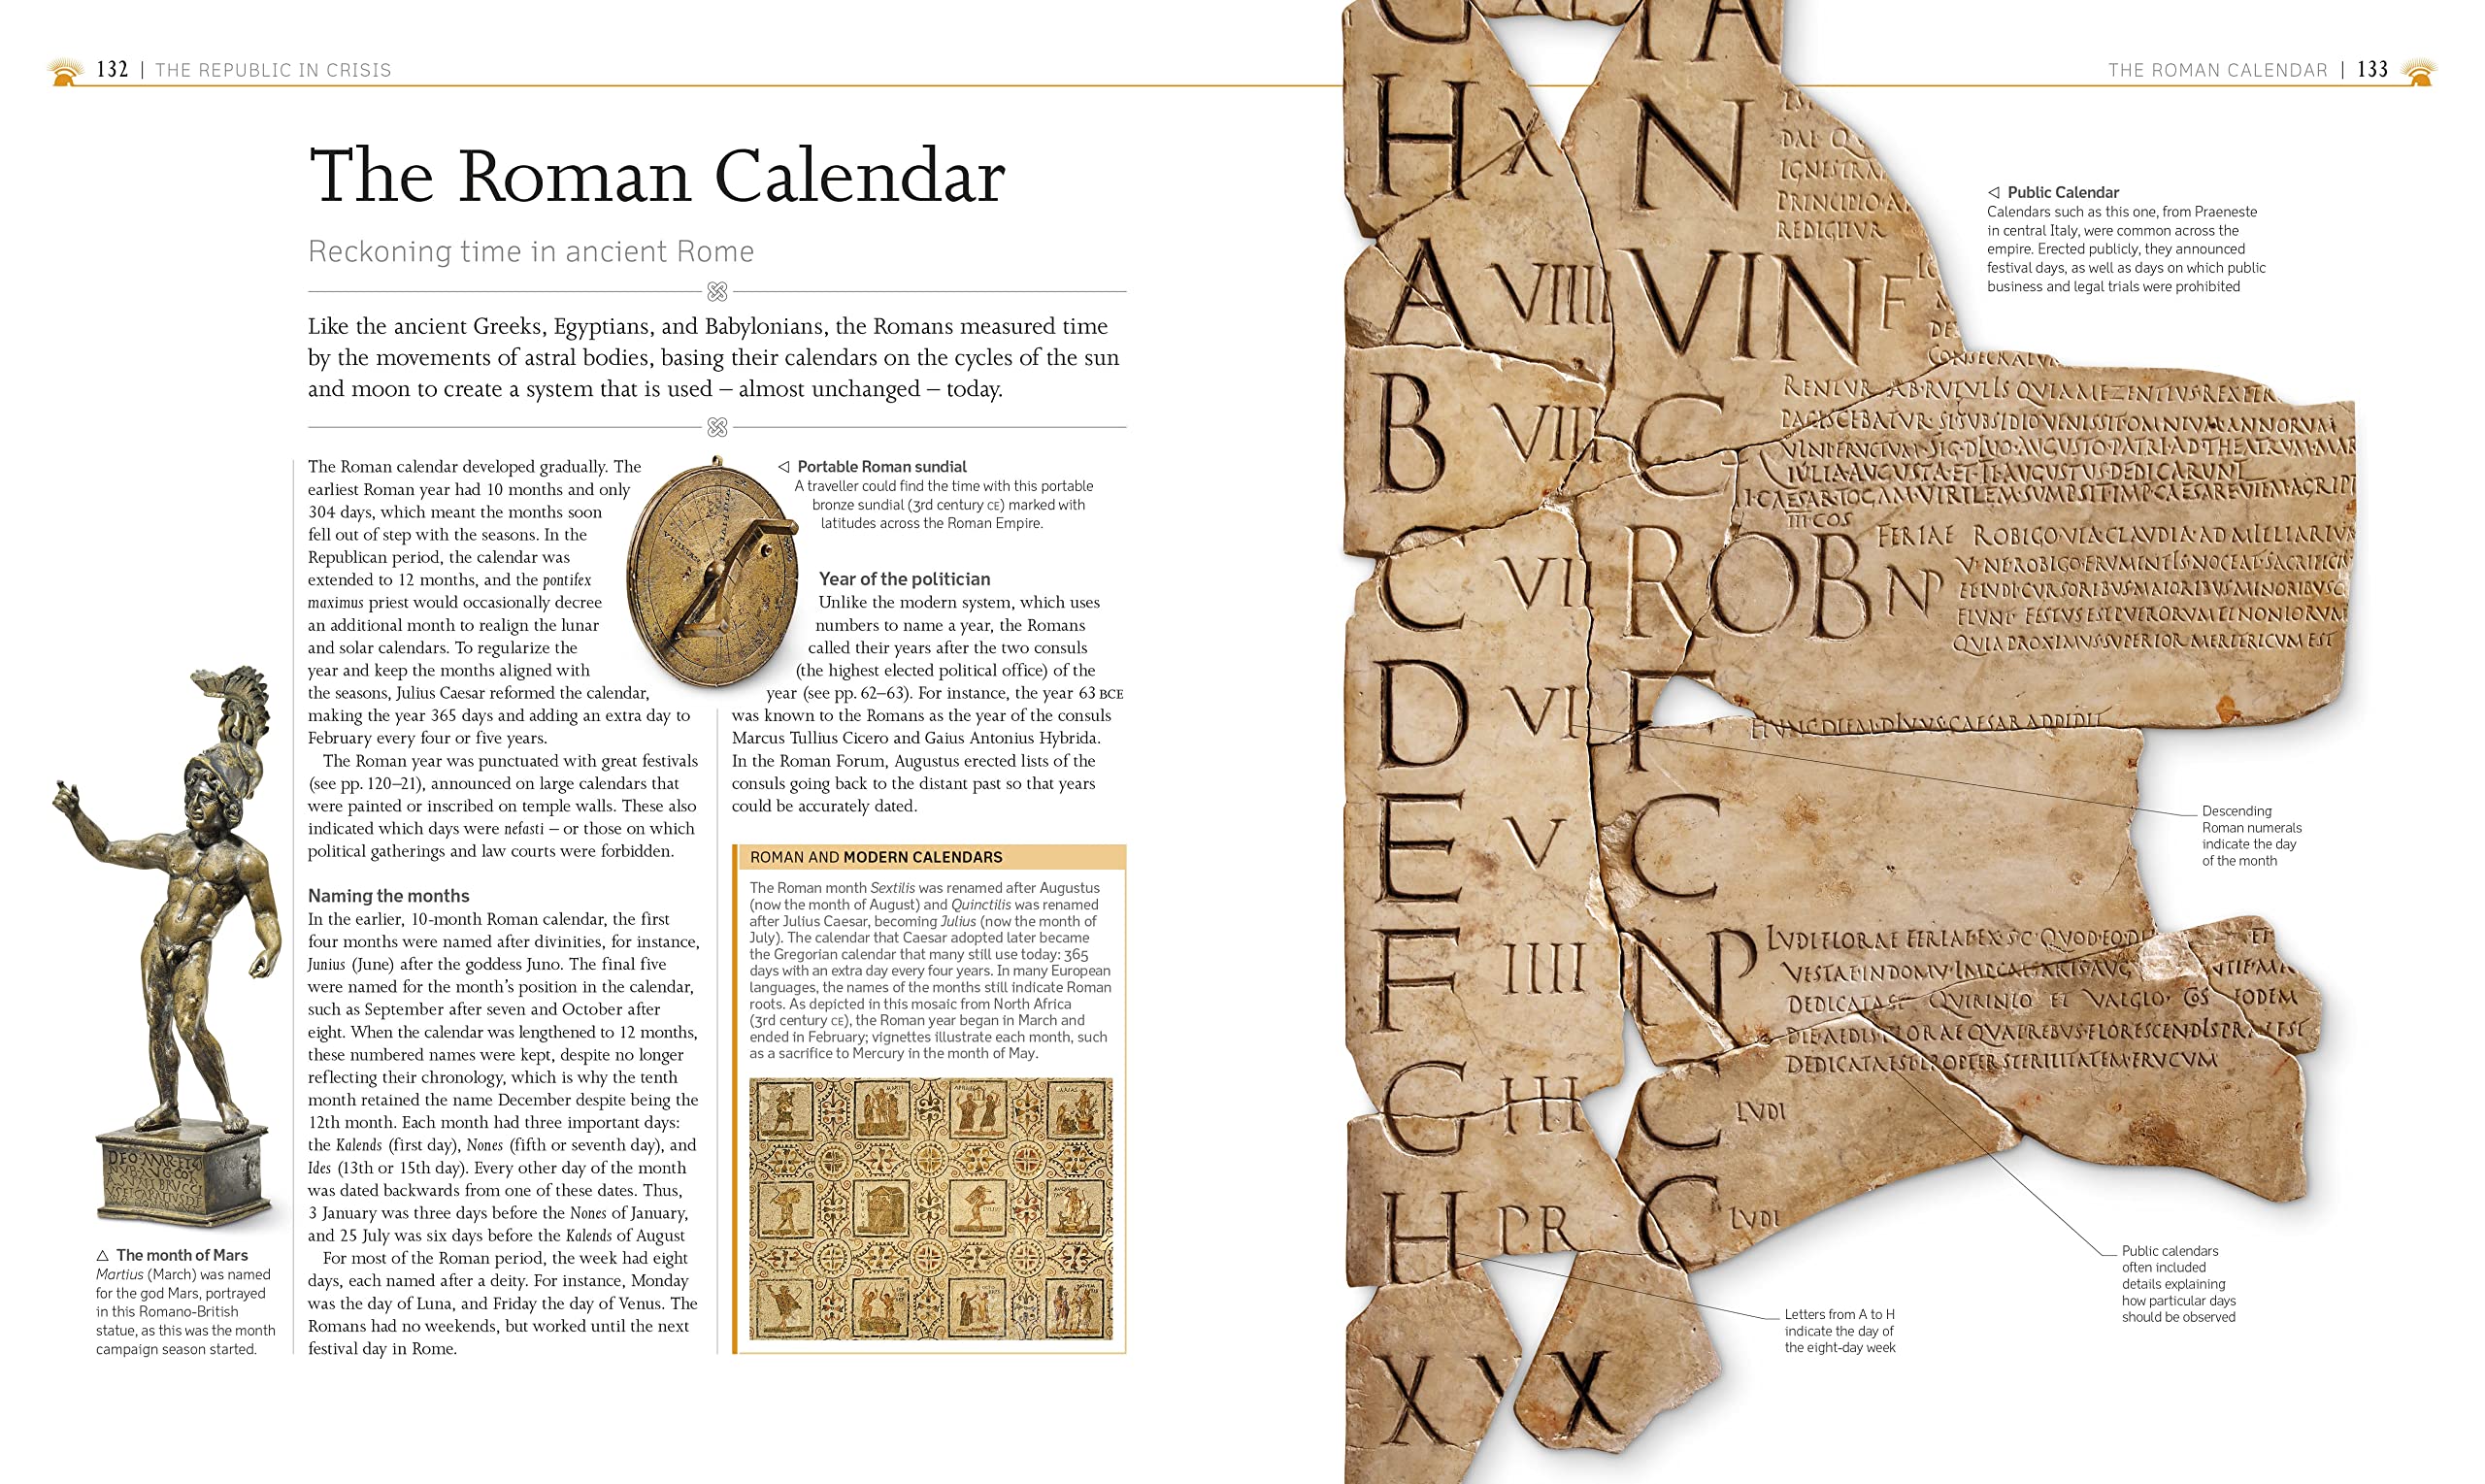 132 | THE REPUBLIC IN CRISIS
The Roman Calendar
Reckoning time in ancient Rome
Like the ancient Greeks, Egyptians, and Babylonians, the Romans measured time
by the movements of astral bodies, basing their calendars on the cycles of the sun
and moon to create a system that is used – almost unchanged – today.
The Roman calendar developed gradually. The
earliest Roman year had 10 months and only
304 days, which meant the months soon
fell out of step with the seasons. In the
Republican period, the calendar was
extended to 12 months, and the pontifex
maximus priest would occasionally decree
an additional month to realign the lunar
and solar calendars. To regularize the
year and keep the months aligned with
the seasons, Julius Caesar reformed the calendar,
making the year 365 days and adding an extra day to
February every four or five years.
The Roman year was punctuated with great festivals
(see pp. 120–21), announced on large calendars that
were painted or inscribed on temple walls. These also
indicated which days were nefasti – or those on which
political gatherings and law courts were forbidden.
Naming the months
In the earlier, 10-month Roman calendar, the first
four months were named after divinities, for instance,
Junius (June) after the goddess Juno. The final five
were named for the month's position in the calendar,
such as September after seven and October after
eight. When the calendar was lengthened to 12 months,
these numbered names were kept, despite no longer
reflecting their chronology, which is why the tenth
month retained the name December despite being the
12th month. Each month had three important days:
the Kalends (first day), Nones (fifth or seventh day), and
Ides (13th or 15th day). Every other day of the month
was dated backwards from one of these dates. Thus,
3 January was three days before the Nones of January,
and 25 July was six days before the Kalends of August
For most of the Roman period, the week had eight
days, each named after a deity. For instance, Monday
was the day of Luna, and Friday the day of Venus. The
Romans had no weekends, but worked until the next
festival day in Rome.
△ The month of Mars
Martius (March) was named
for the god Mars, portrayed
in this Romano-British
statue, as this was the month
campaign season started.
◁ Portable Roman sundial
A traveller could find the time with this portable
bronze sundial (3rd century CE) marked with
latitudes across the Roman Empire.
Year of the politician
Unlike the modern system, which uses
numbers to name a year, the Romans
called their years after the two consuls
(the highest elected political office) of the
year (see pp. 62–63). For instance, the year 63 BCE
was known to the Romans as the year of the consuls
Marcus Tullius Cicero and Gaius Antonius Hybrida.
In the Roman Forum, Augustus erected lists of the
consuls going back to the distant past so that years
could be accurately dated.
ROMAN AND MODERN CALENDARS
The Roman month Sextilis was renamed after Augustus
(now the month of August) and Quinctilis was renamed
after Julius Caesar, becoming Julius (now the month of
July). The calendar that Caesar adopted later became
the Gregorian calendar that many still use today: 365
days with an extra day every four years. In many European
languages, the names of the months still indicate Roman
roots. As depicted in this mosaic from North Africa
(3rd century CE), the Roman year began in March and
ended in February; vignettes illustrate each month, such
as a sacrifice to Mercury in the month of May.
THE ROMAN CALENDAR | 133
◁ Public Calendar
Calendars such as this one, from Praeneste
in central Italy, were common across the
empire. Erected publicly, they announced
festival days, as well as days on which public
business and legal trials were prohibited
H X N
PRINCIPIO
REDIGITVR
A VIIII VIN F
B VIII C
IVLIA AVGVSTA ET TI AVGVSTVS DEDICARVNT
III COS
C VII ROB NP
FERIAE ROBIGO VIA CLAVDIA AD MILIARIVM
D VI F
HVNC DIEM DIVVS CAESAR ADDIDIT
E V C
F IIII NP
LVDI FLORAE
G III C LVDI
H PR C LVDI
X V X
Descending
Roman numerals
indicate the day
of the month
Public calendars
often included
details explaining
how particular days
should be observed
Letters from A to H
indicate the day of
the eight-day week